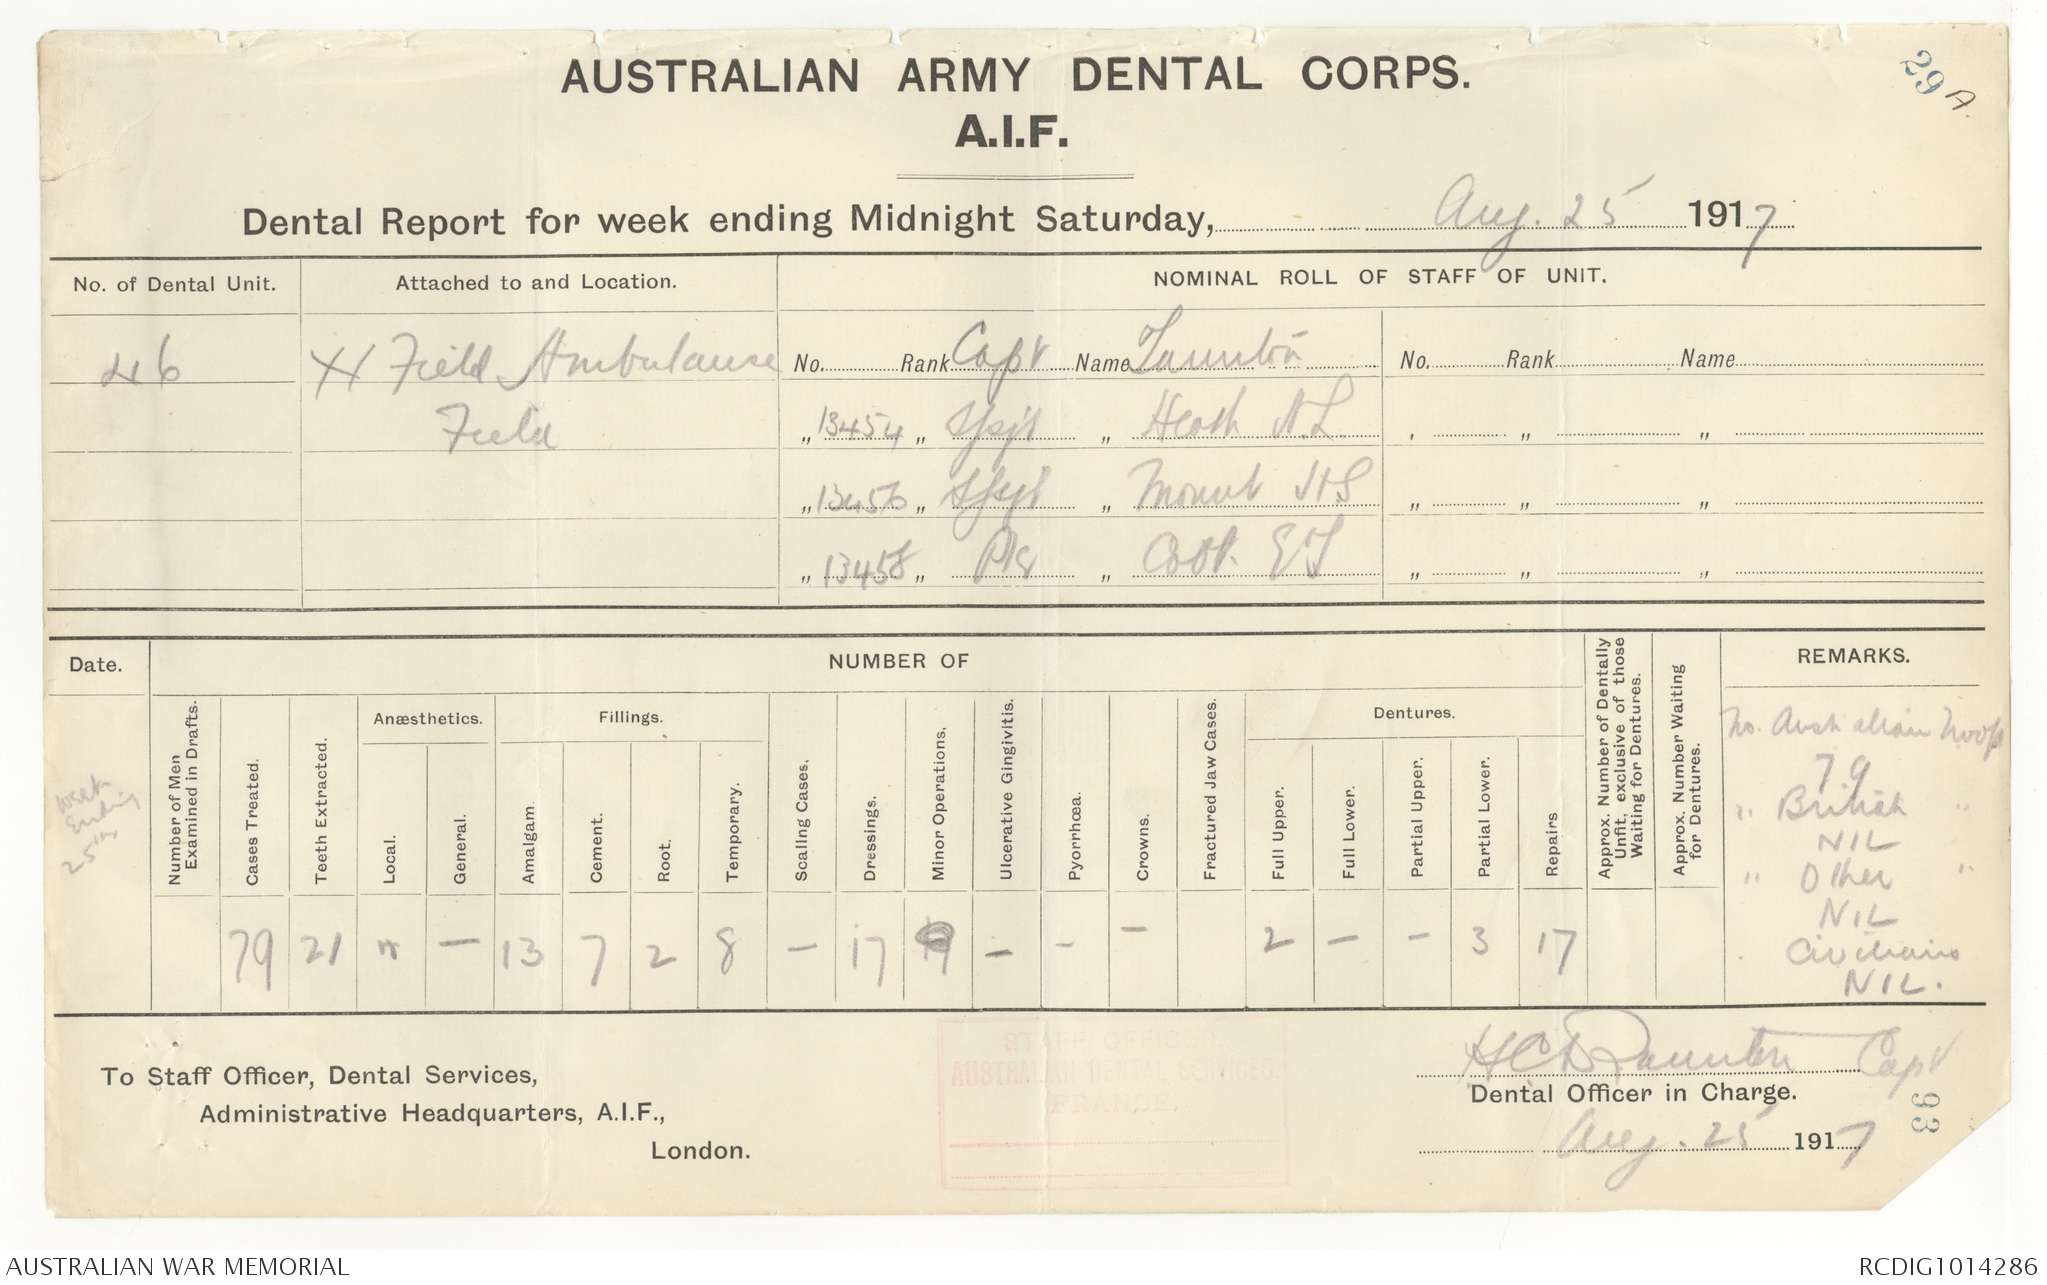 AUSTRALIAN ARMY DENTAL CORPS.
29 A.
A.I.F.
Dental Report for week ending Midnight Saturday, Aug. 25 1917
No. of Dental Unit.
Attached to and Location.
NOMINAL ROLL OF STAFF OF UNIT.
46
Field Ambulance
No. Rank Capt Name Taunton
No. Rank Name
Field
" 13454 " S/Sjt " Heath A.L
" " "
" 13456 " S/Sgt " Mount H S
" " "
" 13458 " Pte "
" " "
Date.
NUMBER OF
REMARKS.
Number of Men Examined in Drafts.
Cases Treated.
Teeth Extracted.
Anæsthetics.
Local.
General.
Fillings.
Amalgam.
Cement.
Root.
Temporary.
Scaling Cases.
Dressings.
Minor Operations.
Ulcerative Gingivitis.
Pyorrhœa.
Crowns.
Fractured Jaw Cases.
Dentures.
Full Upper.
Full Lower.
Partial Upper.
Partial Lower.
Repairs
Approx. Number of Dentally Unfit, exclusive of those Waiting for Dentures.
Approx. Number Waiting for Dentures.
Week
Ending
25th
79 21 — 13 7 2 8 — 17 — — — 2 — — 3 17
No. Australian Troops
79
" British "
NIL
" Other "
NIL
Civilians
NIL.
To Staff Officer, Dental Services,
Administrative Headquarters, A.I.F.,
London.
STAFF OFFICER,
AUSTRALIAN DENTAL SERVICES,
FRANCE.
H C D Taunton Capt
Dental Officer in Charge.
Aug. 25 1917
93
AUSTRALIAN WAR MEMORIAL
RCDIG1014286